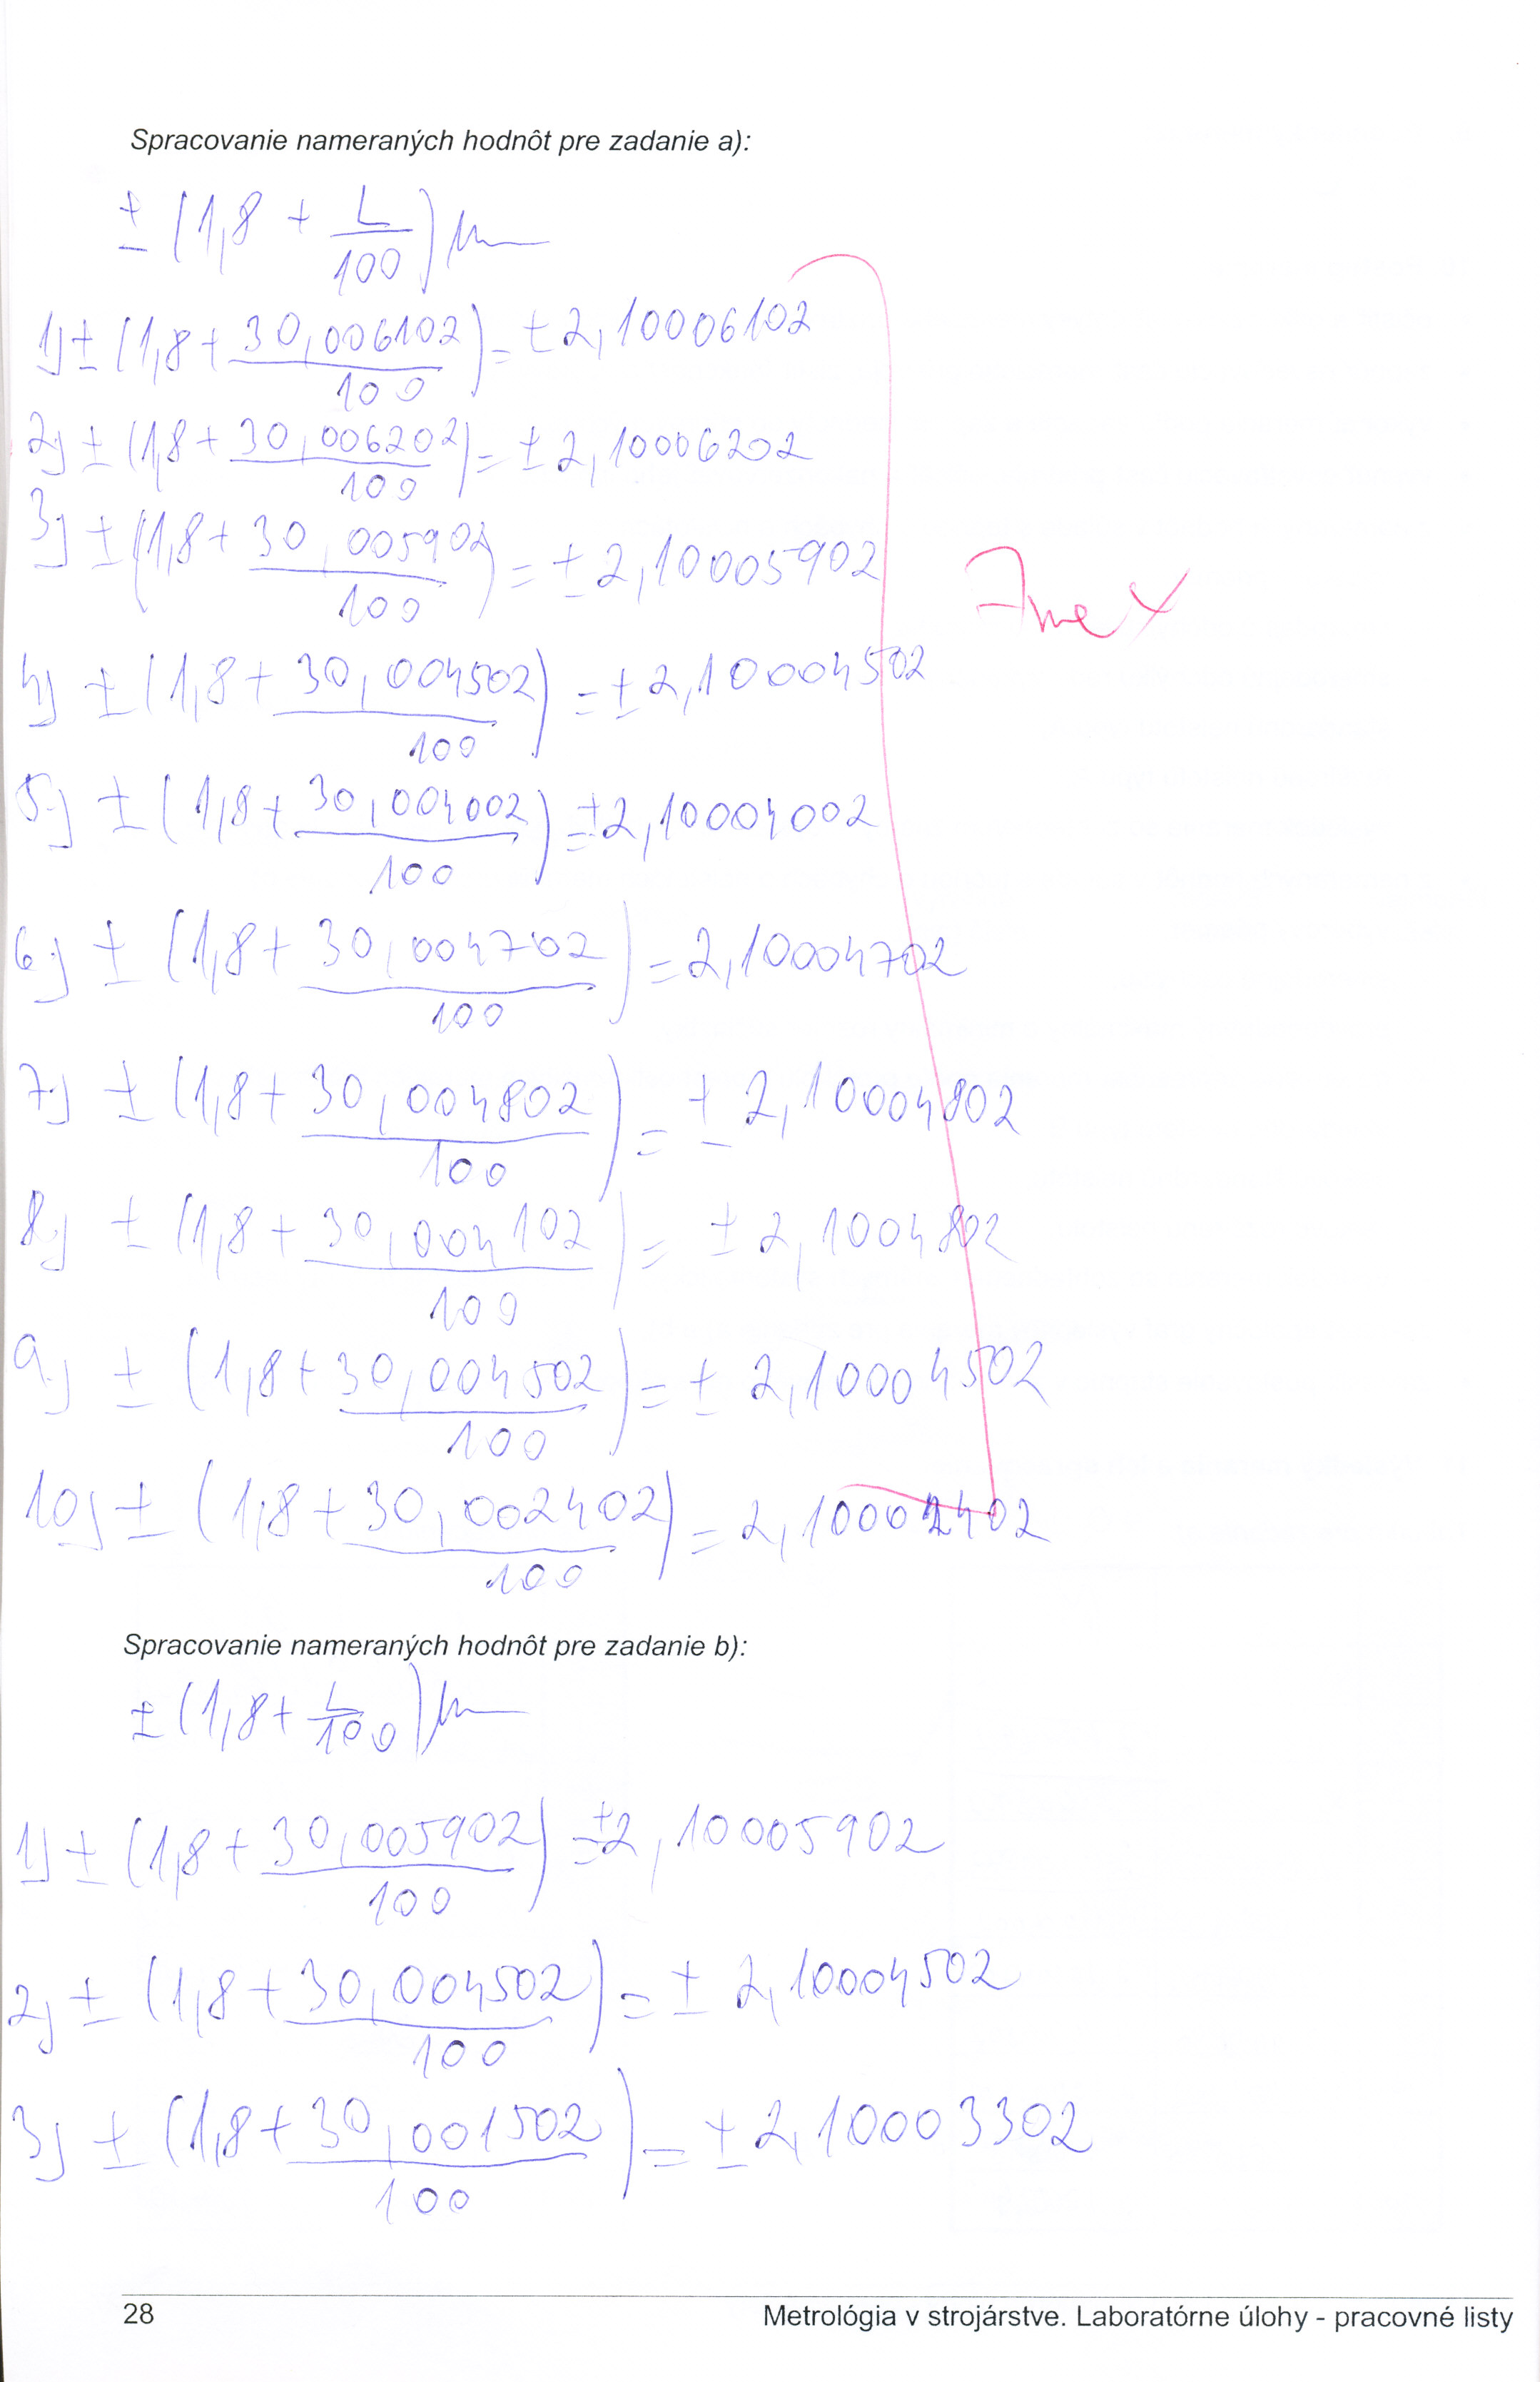 Spracovanie nameraných hodnôt pre zadanie a):
± (1,8 + L/100) μm
1) ± (1,8 + 30,006102/100) = ±2,10006102
2) ± (1,8 + 30,006202/100) = ±2,10006202
3) ± (1,8 + 30,005902/100) = ±2,10005902
4) ± (1,8 + 30,004502/100) = ±2,10004502
5) ± (1,8 + 30,004002/100) = ±2,10004002
6) ± (1,8 + 30,004702/100) = 2,10004702
7) ± (1,8 + 30,004802/100) = ±2,10004802
8) ± (1,8 + 30,004102/100) = ±2,1004802
9) ± (1,8 + 30,004502/100) = ±2,10004502
10) ± (1,8 + 30,002402/100) = 2,10002402
Spracovanie nameraných hodnôt pre zadanie b):
± (1,8 + L/100) μm
1) ± (1,8 + 30,005902/100) = ±2,10005902
2) ± (1,8 + 30,004502/100) = ±2,10004502
3) ± (1,8 + 30,001502/100) = ±2,10003302
28
Metrológia v strojárstve. Laboratórne úlohy - pracovné listy